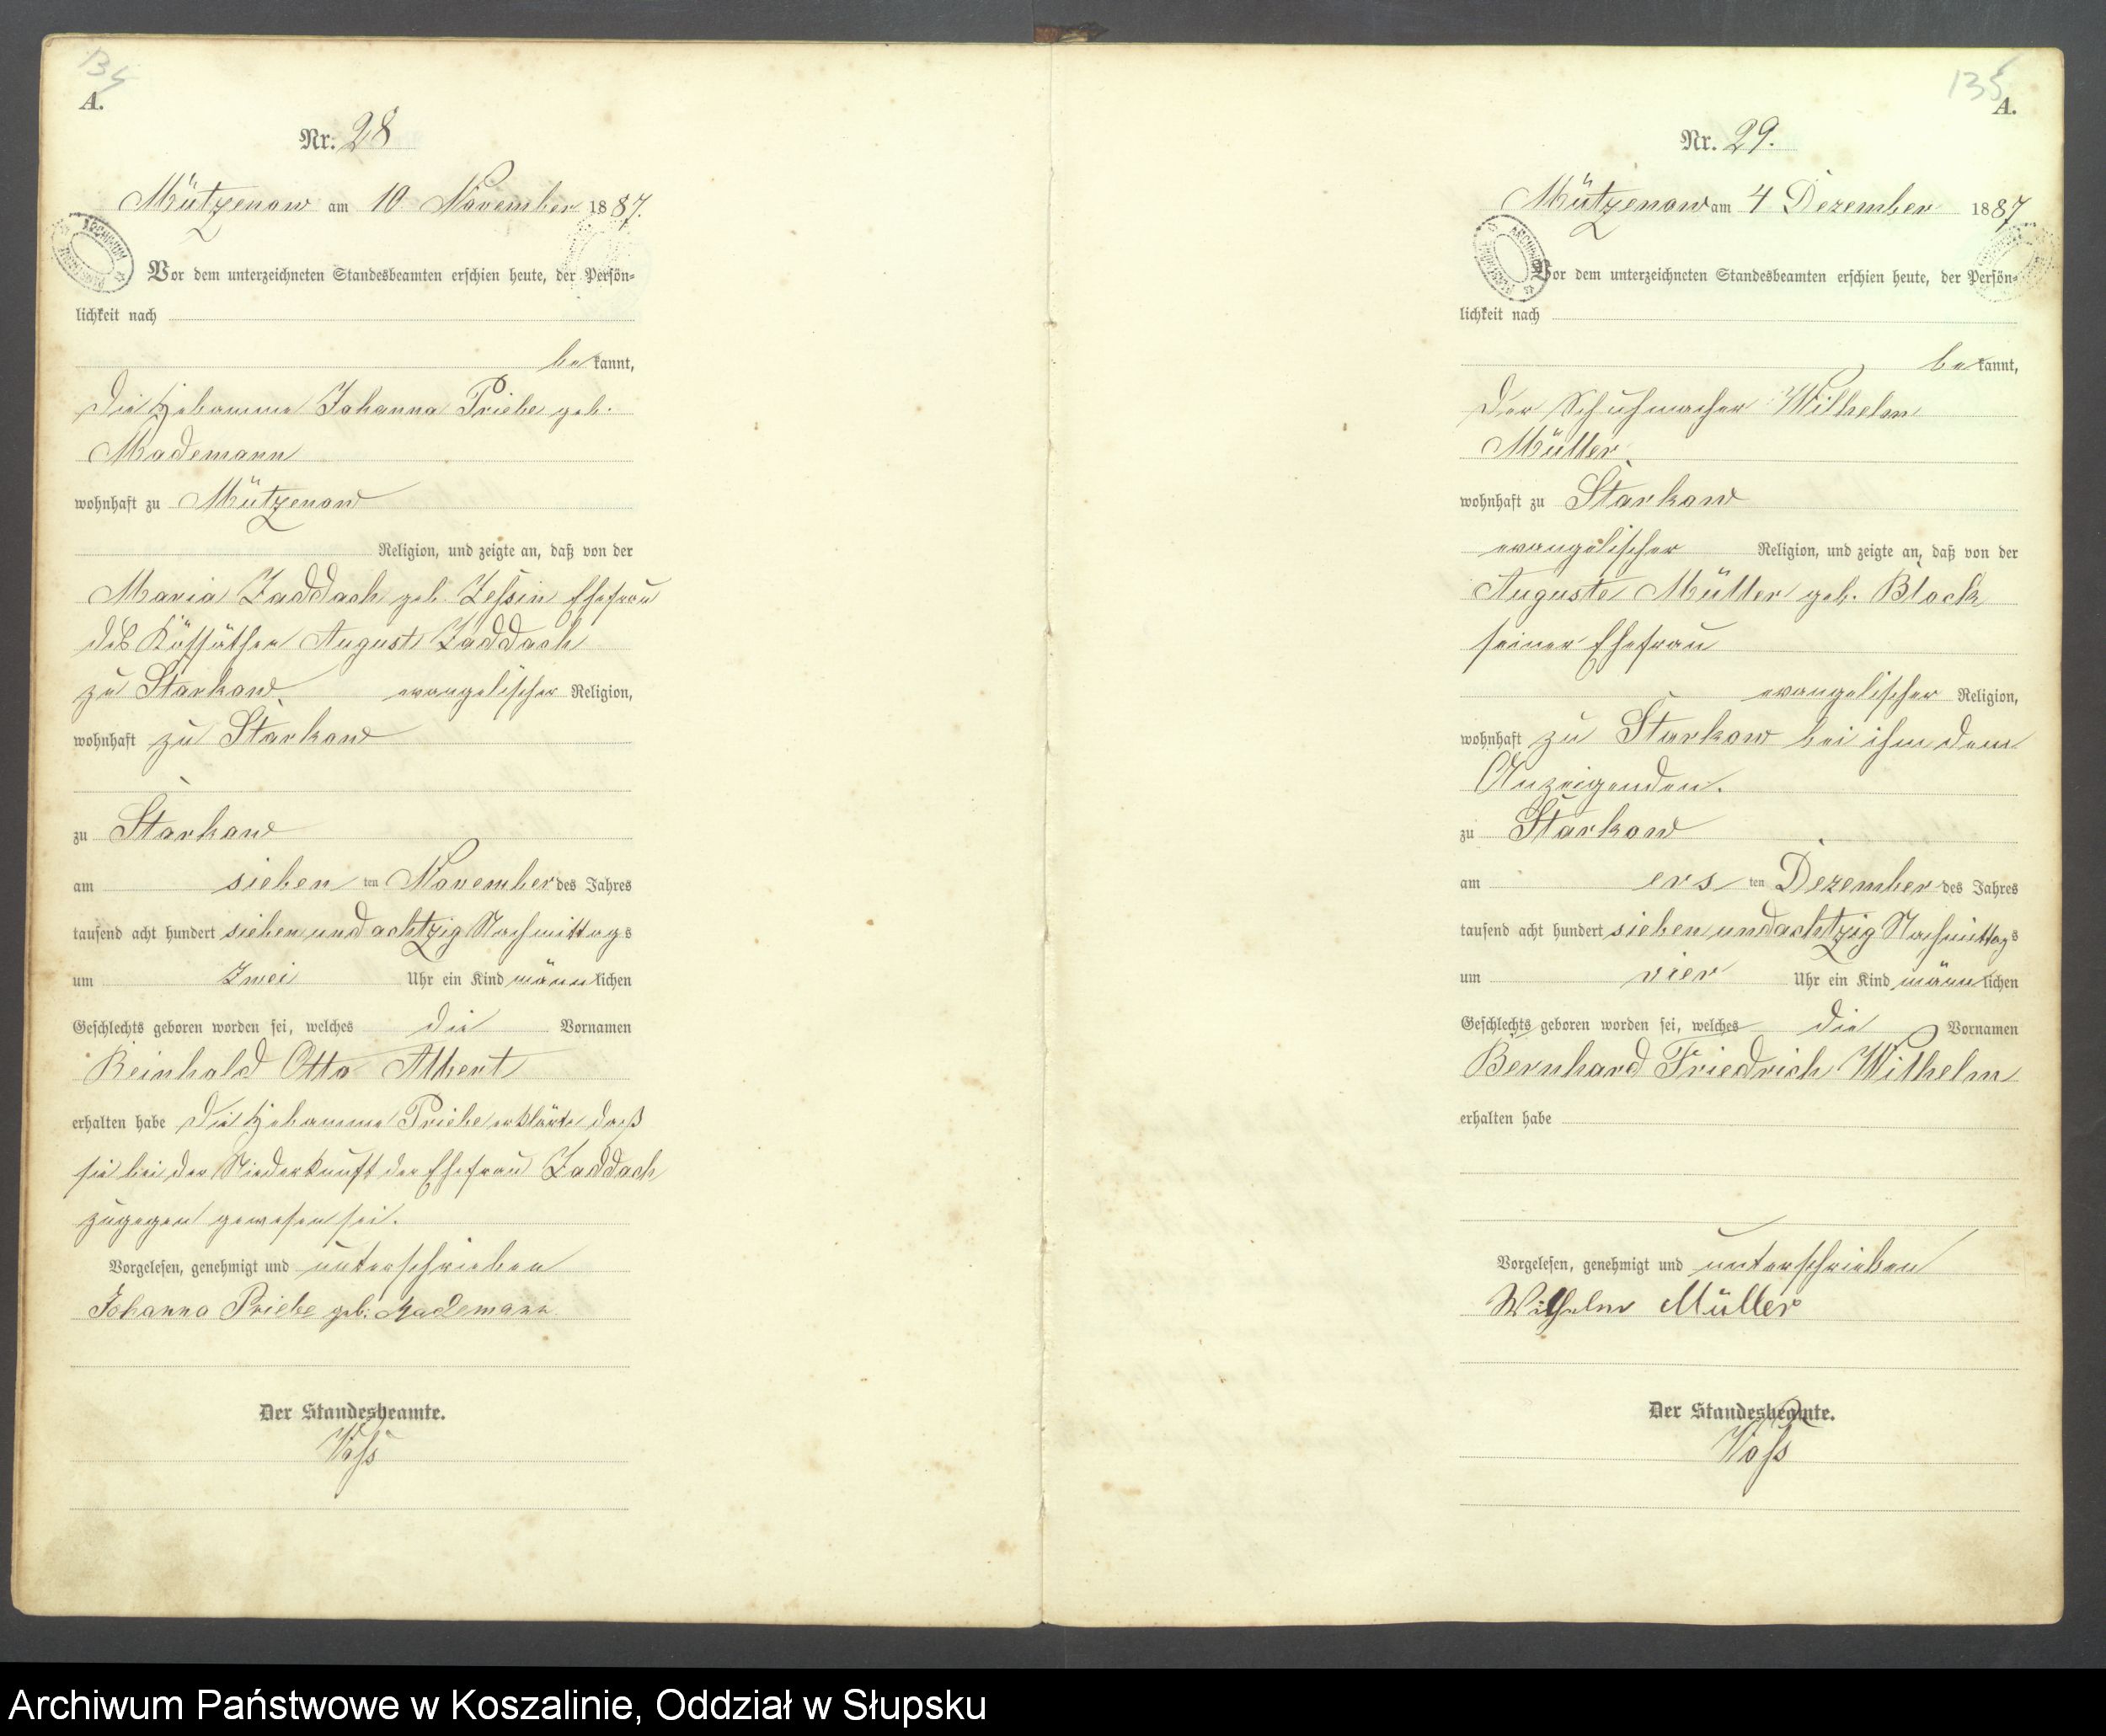 134
A.
Nr. 28
Mützenow am 10 November 1887.
Vor dem unterzeichneten Standesbeamten erschien heute, der Persön-
lichkeit nach
bekannt,
die Hebamme Johanna Priebe geb.
Mademann
wohnhaft zu Mützenow
Religion, und zeigte an, daß von der
Maria Zaddach geb. Zessin Ehefrau
des August Zaddach
zu Starkow evangelischer Religion,
wohnhaft zu Starkow
zu Starkow
am siebenten November des Jahres
tausend acht hundert sieben und achtzig Nachmittags
um zwei Uhr ein Kind männlichen
Geschlechts geboren worden sei, welches die Vornamen
Reinhold Otto Albert
erhalten habe die Hebamme Priebe erklärte daß
sie bei der Niederkunft der Ehefrau Zaddach
zugegen gewesen sei.
Vorgelesen, genehmigt und unterschrieben
Johanna Priebe geb: Mademann
Der Standesbeamte.
Voß
135
A.
Nr. 29.
Mützenow am 4 Dezember 1887
Vor dem unterzeichneten Standesbeamten erschien heute, der Persön-
lichkeit nach
bekannt,
der Schuhmacher Wilhelm
Müller
wohnhaft zu Starkow
evangelischer Religion, und zeigte an, daß von der
Auguste Müller geb. Block
seiner Ehefrau
evangelischer Religion,
wohnhaft zu Starkow bei ihm dem
Anzeigenden.
zu Starkow
am ersten Dezember des Jahres
tausend acht hundert sieben und achtzig Nachmittags
um vier Uhr ein Kind männlichen
Geschlechts geboren worden sei, welches die Vornamen
Bernhard Friedrich Wilhelm
erhalten habe
Vorgelesen, genehmigt und unterschrieben
Wilhelm Müller
Der Standesbeamte.
Voß
Archiwum Państwowe w Koszalinie, Oddział w Słupsku